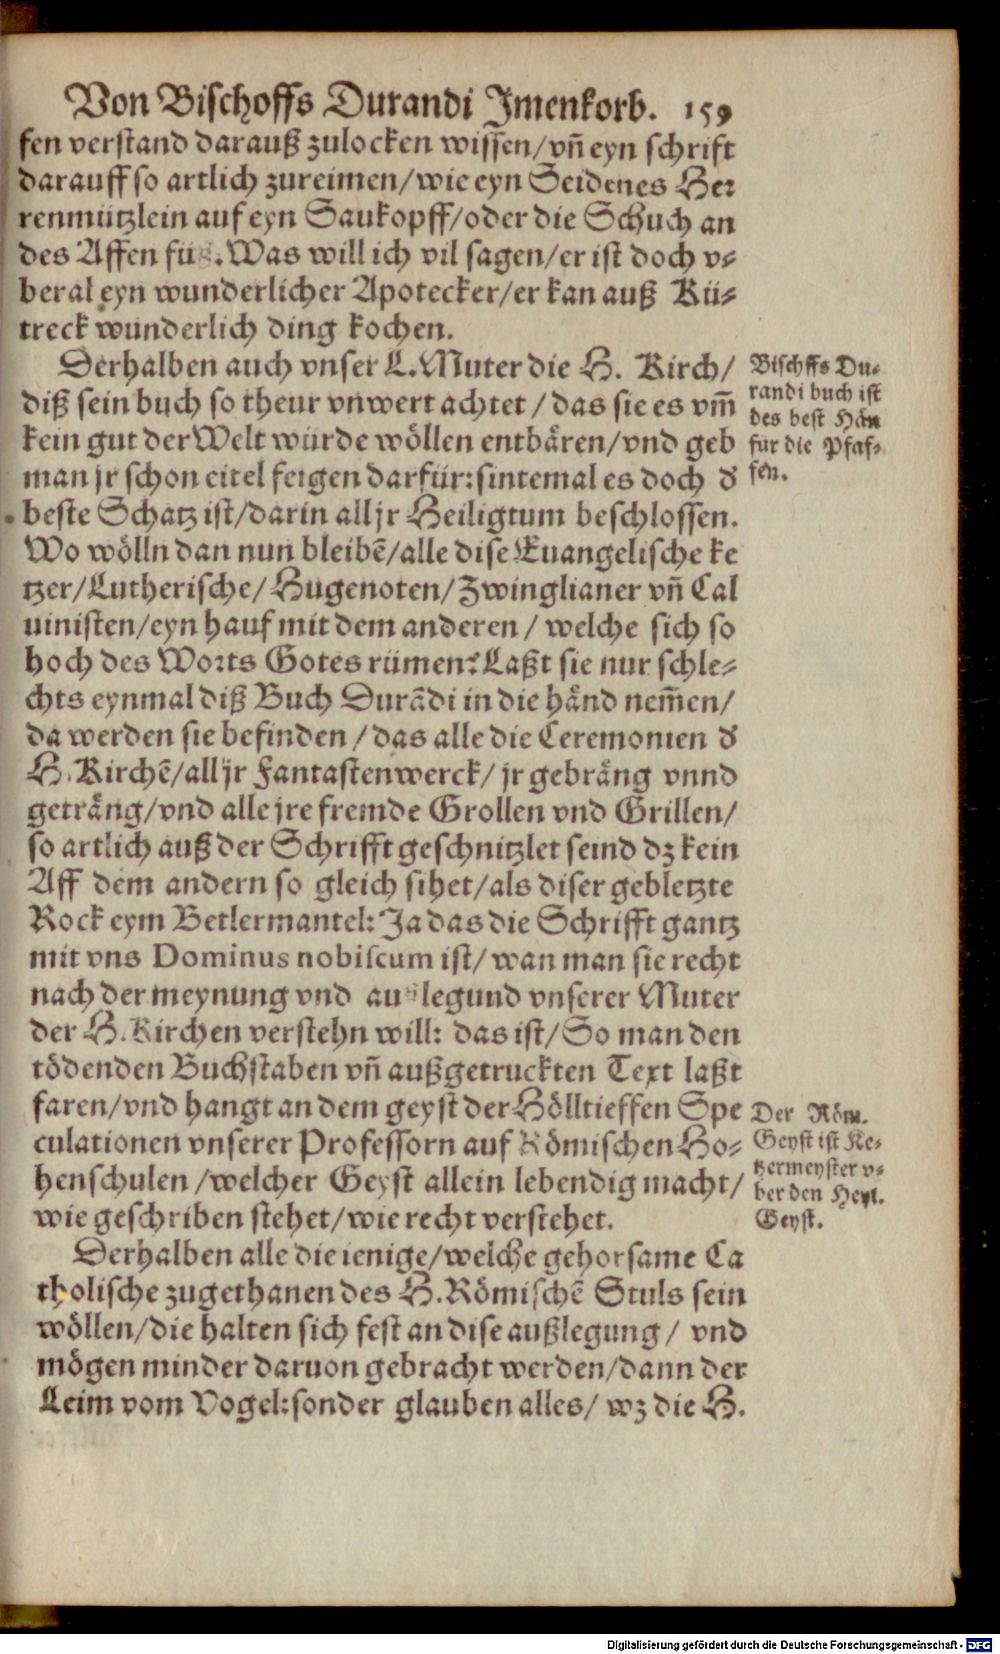 Von Bischoffs Durandi Jmenkorb. 159
fen verstand darauß zulocken wissen/vñ eyn schrift
darauff so artlich zureimen/wie eyn Seidenes Her
renmützlein auf eyn Saukopff/oder die Schuch an
des Affen füß. Was will ich vil sagen/er ist doch v-
beral eyn wunderlicher Apotecker/er kan auß Kü-
treck wunderlich ding kochen.
Derhalben auch vnser L. Muter die H. Kirch/
diß sein buch so theur vnwert achtet/das sie es vm̃
kein gut der Welt würde wöllen entbären/vnd geb
man jr schon eitel feigen darfür: sintemal es doch d'
beste Schatz ist/darin all jr Heiligtum beschlossen.
Wo wölln dan nun bleibẽ/alle dise Euangelische ke
tzer/Lutherische/Hugenoten/Zwinglianer vñ Cal
uinisten/eyn hauf mit dem anderen/welche sich so
hoch des Worts Gotes rümen? Laßt sie nur schle-
chts eynmal diß Buch Durãdi in die händ nem̃en/
da werden sie befinden/das alle die Ceremonien d'
H. Kirchẽ/all jr Fantastenwerck/jr gebräng vnnd
geträng/vnd alle jre fremde Grollen vnd Grillen/
so artlich auß der Schrifft geschnitzlet seind dz kein
Aff dem andern so gleich sihet/als diser gebletzte
Rock eym Betlermantel: Ja das die Schrifft gantz
mit vns Dominus nobiscum ist/wan man sie recht
nach der meynung vnd außlegund vnserer Muter
der H. Kirchen verstehn will: das ist/So man den
tödenden Buchstaben vñ außgetruckten Text laßt
faren/vnd hangt an dem geyst der Hölltieffen Spe
culationen vnserer Professorn auf Römischen Ho-
henschulen/welcher Geyst allein lebendig macht/
wie geschriben stehet/wie recht verstehet.
Derhalben alle die ienige/welche gehorsame Ca
tholische zugethanen des H. Römischẽ Stuls sein
wöllen/die halten sich fest an dise außlegung/vnd
mögen minder daruon gebracht werden/dann der
Leim vom Vogel: sonder glauben alles/wz die H.
Bischffs Du-
randi buch ist
des best Hän
für die Pfaf-
fen.
Der Röm.
Geyst ist Ke-
tzermeyster v-
ber den Heyl.
Geyst.
Digitalisierung gefördert durch die Deutsche Forschungsgemeinschaft - DFG